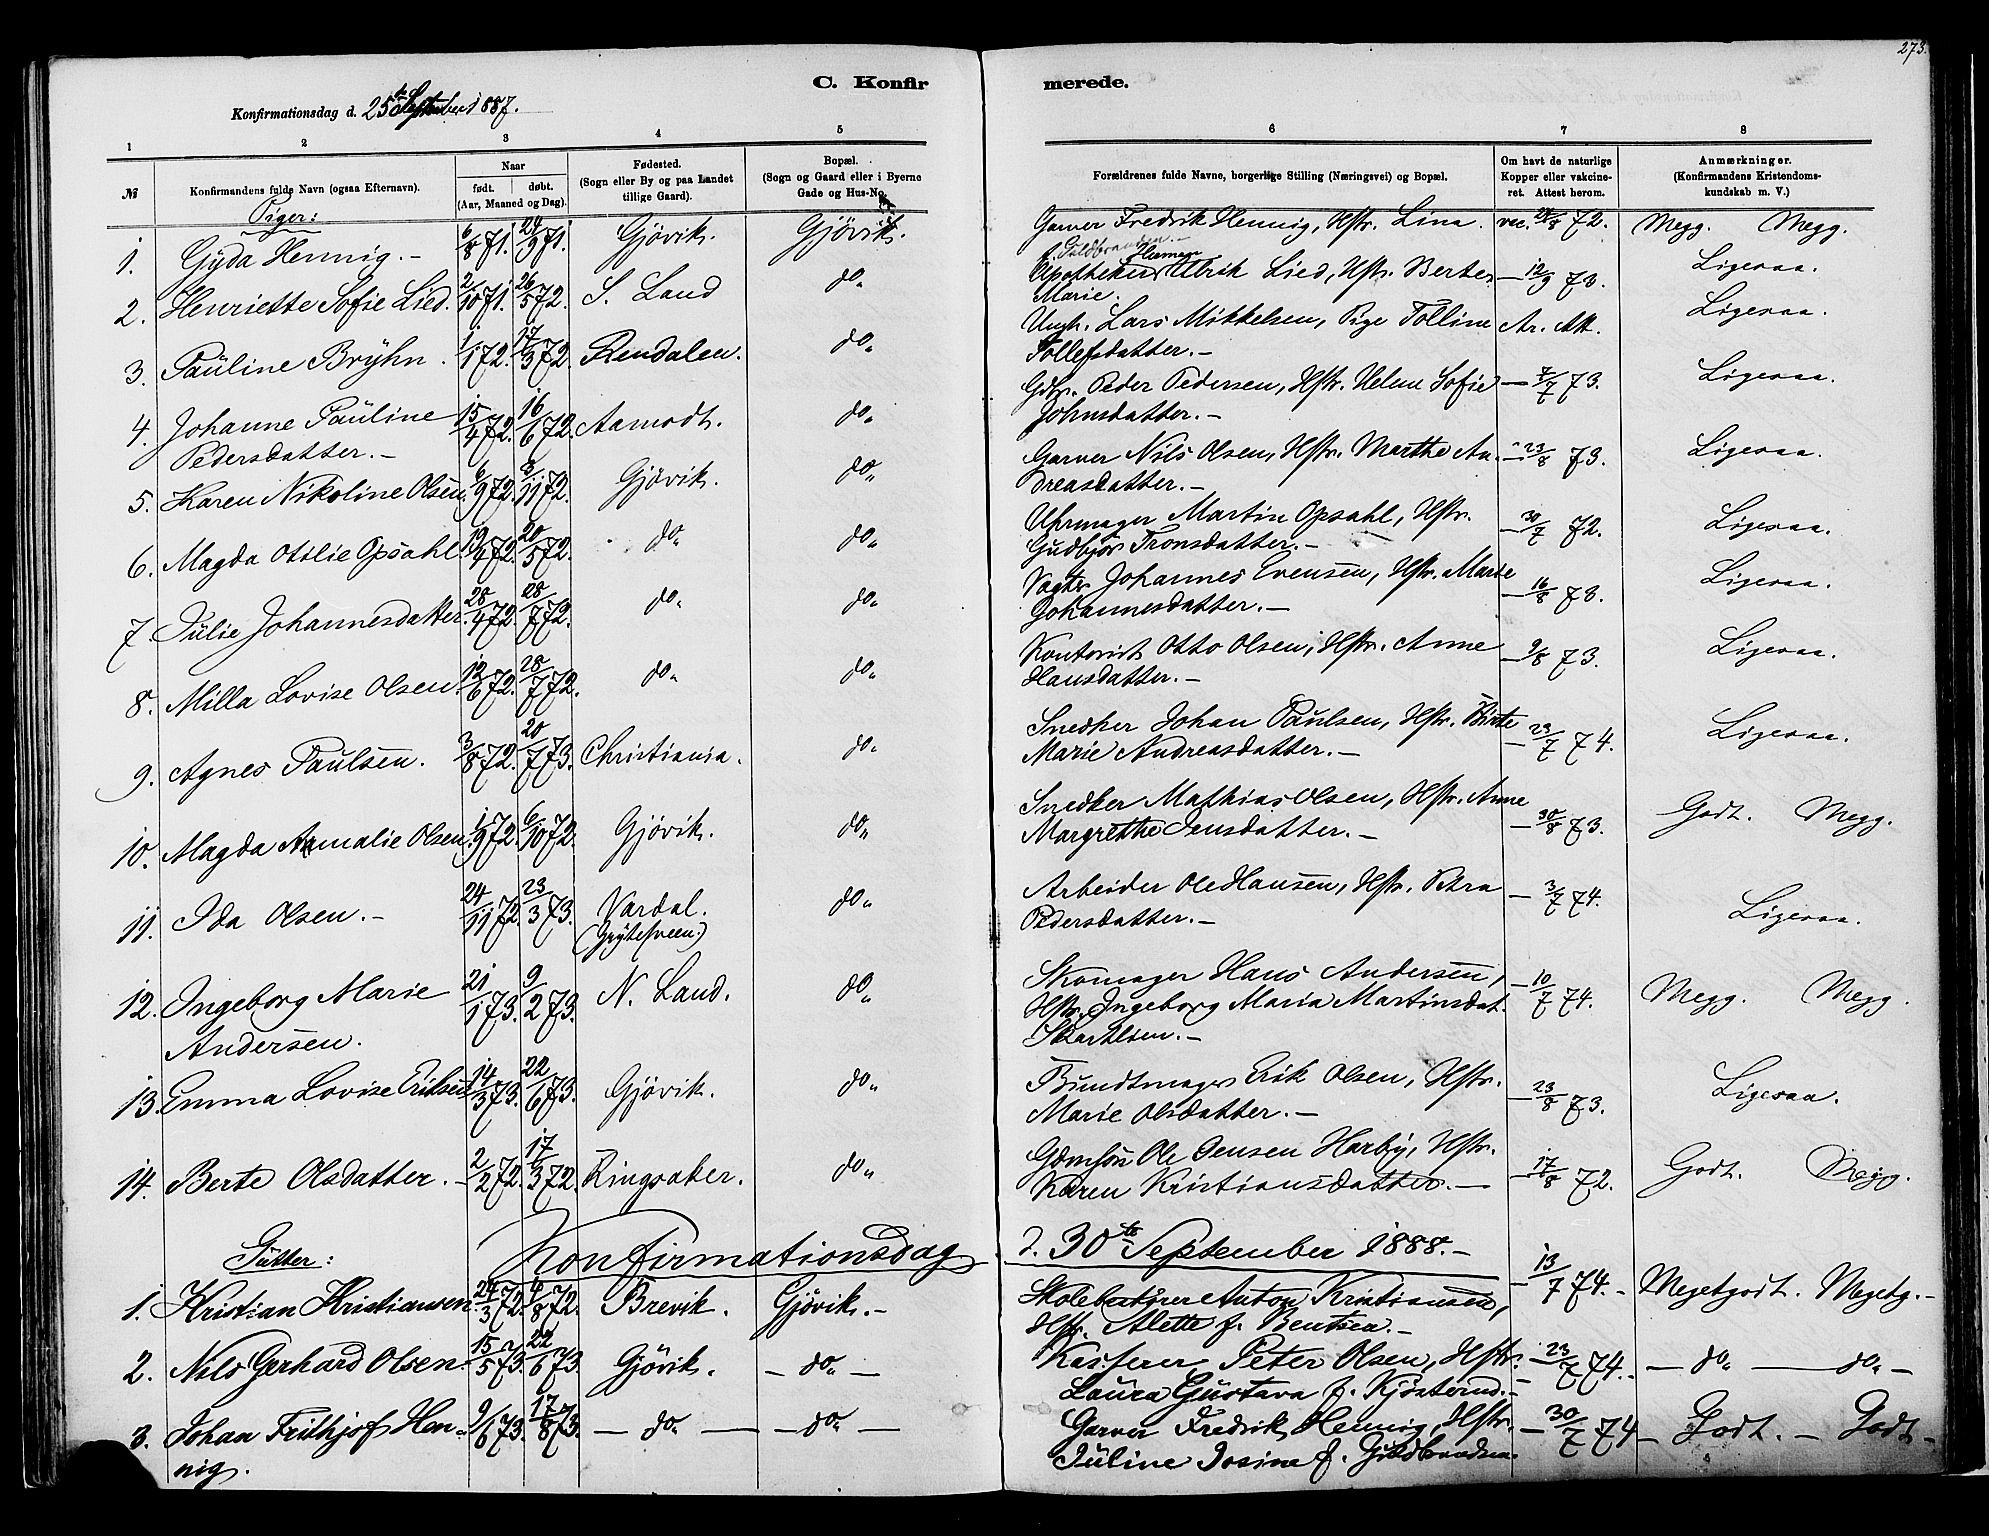 273.
C. Konfirmerede.
Konfirmationsdag d. 25de September 1887.
1 2 3 4 5 6 7 8
№ Konfirmandens fulde Navn (ogsaa Efternavn). Naar født. døbt. (Aar, Maaned og Dag). Fødested. (Sogn eller By og paa Landet tillige Gaard). Bopæl. (Sogn og Gaard eller i Byerne Gade og Hus-No. Forældrenes fulde Navne, borgerlige Stilling (Næringsvei) og Bopæl. Om havt de naturlige Kopper eller vakcineret. Attest herom. Anmærkninger. (Konfirmandens Kristendomskundskab m. V.)
Piger:
1. Gyda Hennig. 6/8 71. 24/9 71. Gjövik. Gjövik. Garver Fredrik Hennig, Hstr. Lina vac. 28/8 72. Megg. Megg.
f. Guldbrandsen.
2. Henriette Sofie Lied. 2/10 71. 26/5 72. S. Land do. Apotheker Ulrik Lied, Hstr. Berte 12/9 73. Ligesaa.
Marie.
3. Pauline Bryhn. 1/1 72. 17/3 72. Rendalen. do. Ungk. Lars Mikkelsen, Pige Tolline Ar. Att. Ligesaa.
Tollefsdatter.
4. Johanne Pauline 15/4 72. 16/6 72. Aamodt. do. Gdbr. Peder Pedersen, Hstr. Helene Sofie 7/7 73. Ligesaa.
Pedersdatter. Johnsdatter.
5. Karen Nikoline Olsen. 6/9 72. 3/11 72. Gjövik. do. Garver Nils Olsen, Hstr. Marthe An- 23/8 73. Ligesaa.
dreasdatter.
6. Magda Otilie Opsahl 19/4 72. 20/5 72. do. do. Uhrmager Martin Opsahl, Hstr. 30/7 72. Ligesaa.
Gudbjör Tronsdatter.
7. Julie Johannesdatter. 28/4 72. 28/7 72. do. do. Vægter Johannes Evensen, Hstr. Marie 16/8 73. Ligesaa.
Johannesdatter.
8. Milla Lovise Olsen. 12/6 72. 28/7 72. do. do. Kontorist Otto Olsen, Hstr. Anne 9/8 73. Ligesaa.
Hansdatter.
9. Agnes Paulsen. 3/8 72. 20/7 73. Christiania. do. Snedker Johan Paulsen, Hstr. Birte 23/7 74. Ligesaa.
Marie Andreasdatter.
10. Magda Amalie Olsen. 1/9 72. 6/10 72. Gjövik. do. Snedker Mathias Olsen, Hstr. Anne 30/8 73. Godt. Megg.
Margrethe Jensdatter.
11. Ida Olsen. 24/11 72. 23/3 73. Vardal. do. Arbeider Ole Hansen, Hstr. Petra 3/7 74. Ligesaa.
(Grytesveen.) Pedersdatter.
12. Ingeborg Marie 21/1 73. 9/2 73. N. Land. do. Skomager Hans Andersen, 10/7 74. Megg. Megg.
Andersen. Hstr. Ingeborg Maria Martinsdat.
13. Emma Lovise Eriksen 14/3 73. 22/6 73. Gjövik. do. Bundtmager Erik Olsen, Hstr. 23/8 73. Ligesaa.
Marie Olsdatter.
14. Berte Olsdatter. 2/2 72. 17/3 72. Ringsaker. do. Gdmsön Ole Jensen Harby, Hstr. 17/8 72. Godt. Megg.
Karen Kristiansdatter.
Gutter: Konfirmationsdag d. 30te September 1888.
1. Kristian Kristiansen. 24/3 72. 4/8 72. Brevik. Gjövik. Skolebestyrer Anton Kristiansen, 13/7 74. Megetgodt. Megetg.
Hstr. Alette f. Bentsen.
2. Nils Gerhard Olsen. 15/5 73. 22/6 73. Gjövik. do. Kasserer Peter Olsen, Hstr. 23/7 74. do. do.
Laura Gustava f. Kjösterud.
3. Johan Frithjof Hen- 9/6 73. 17/8 73. do. do. Garver Fredrik Hennig, Hstr. 30/7 74 Godt. Godt
nig. Juline Josine f. Guldbrandsen